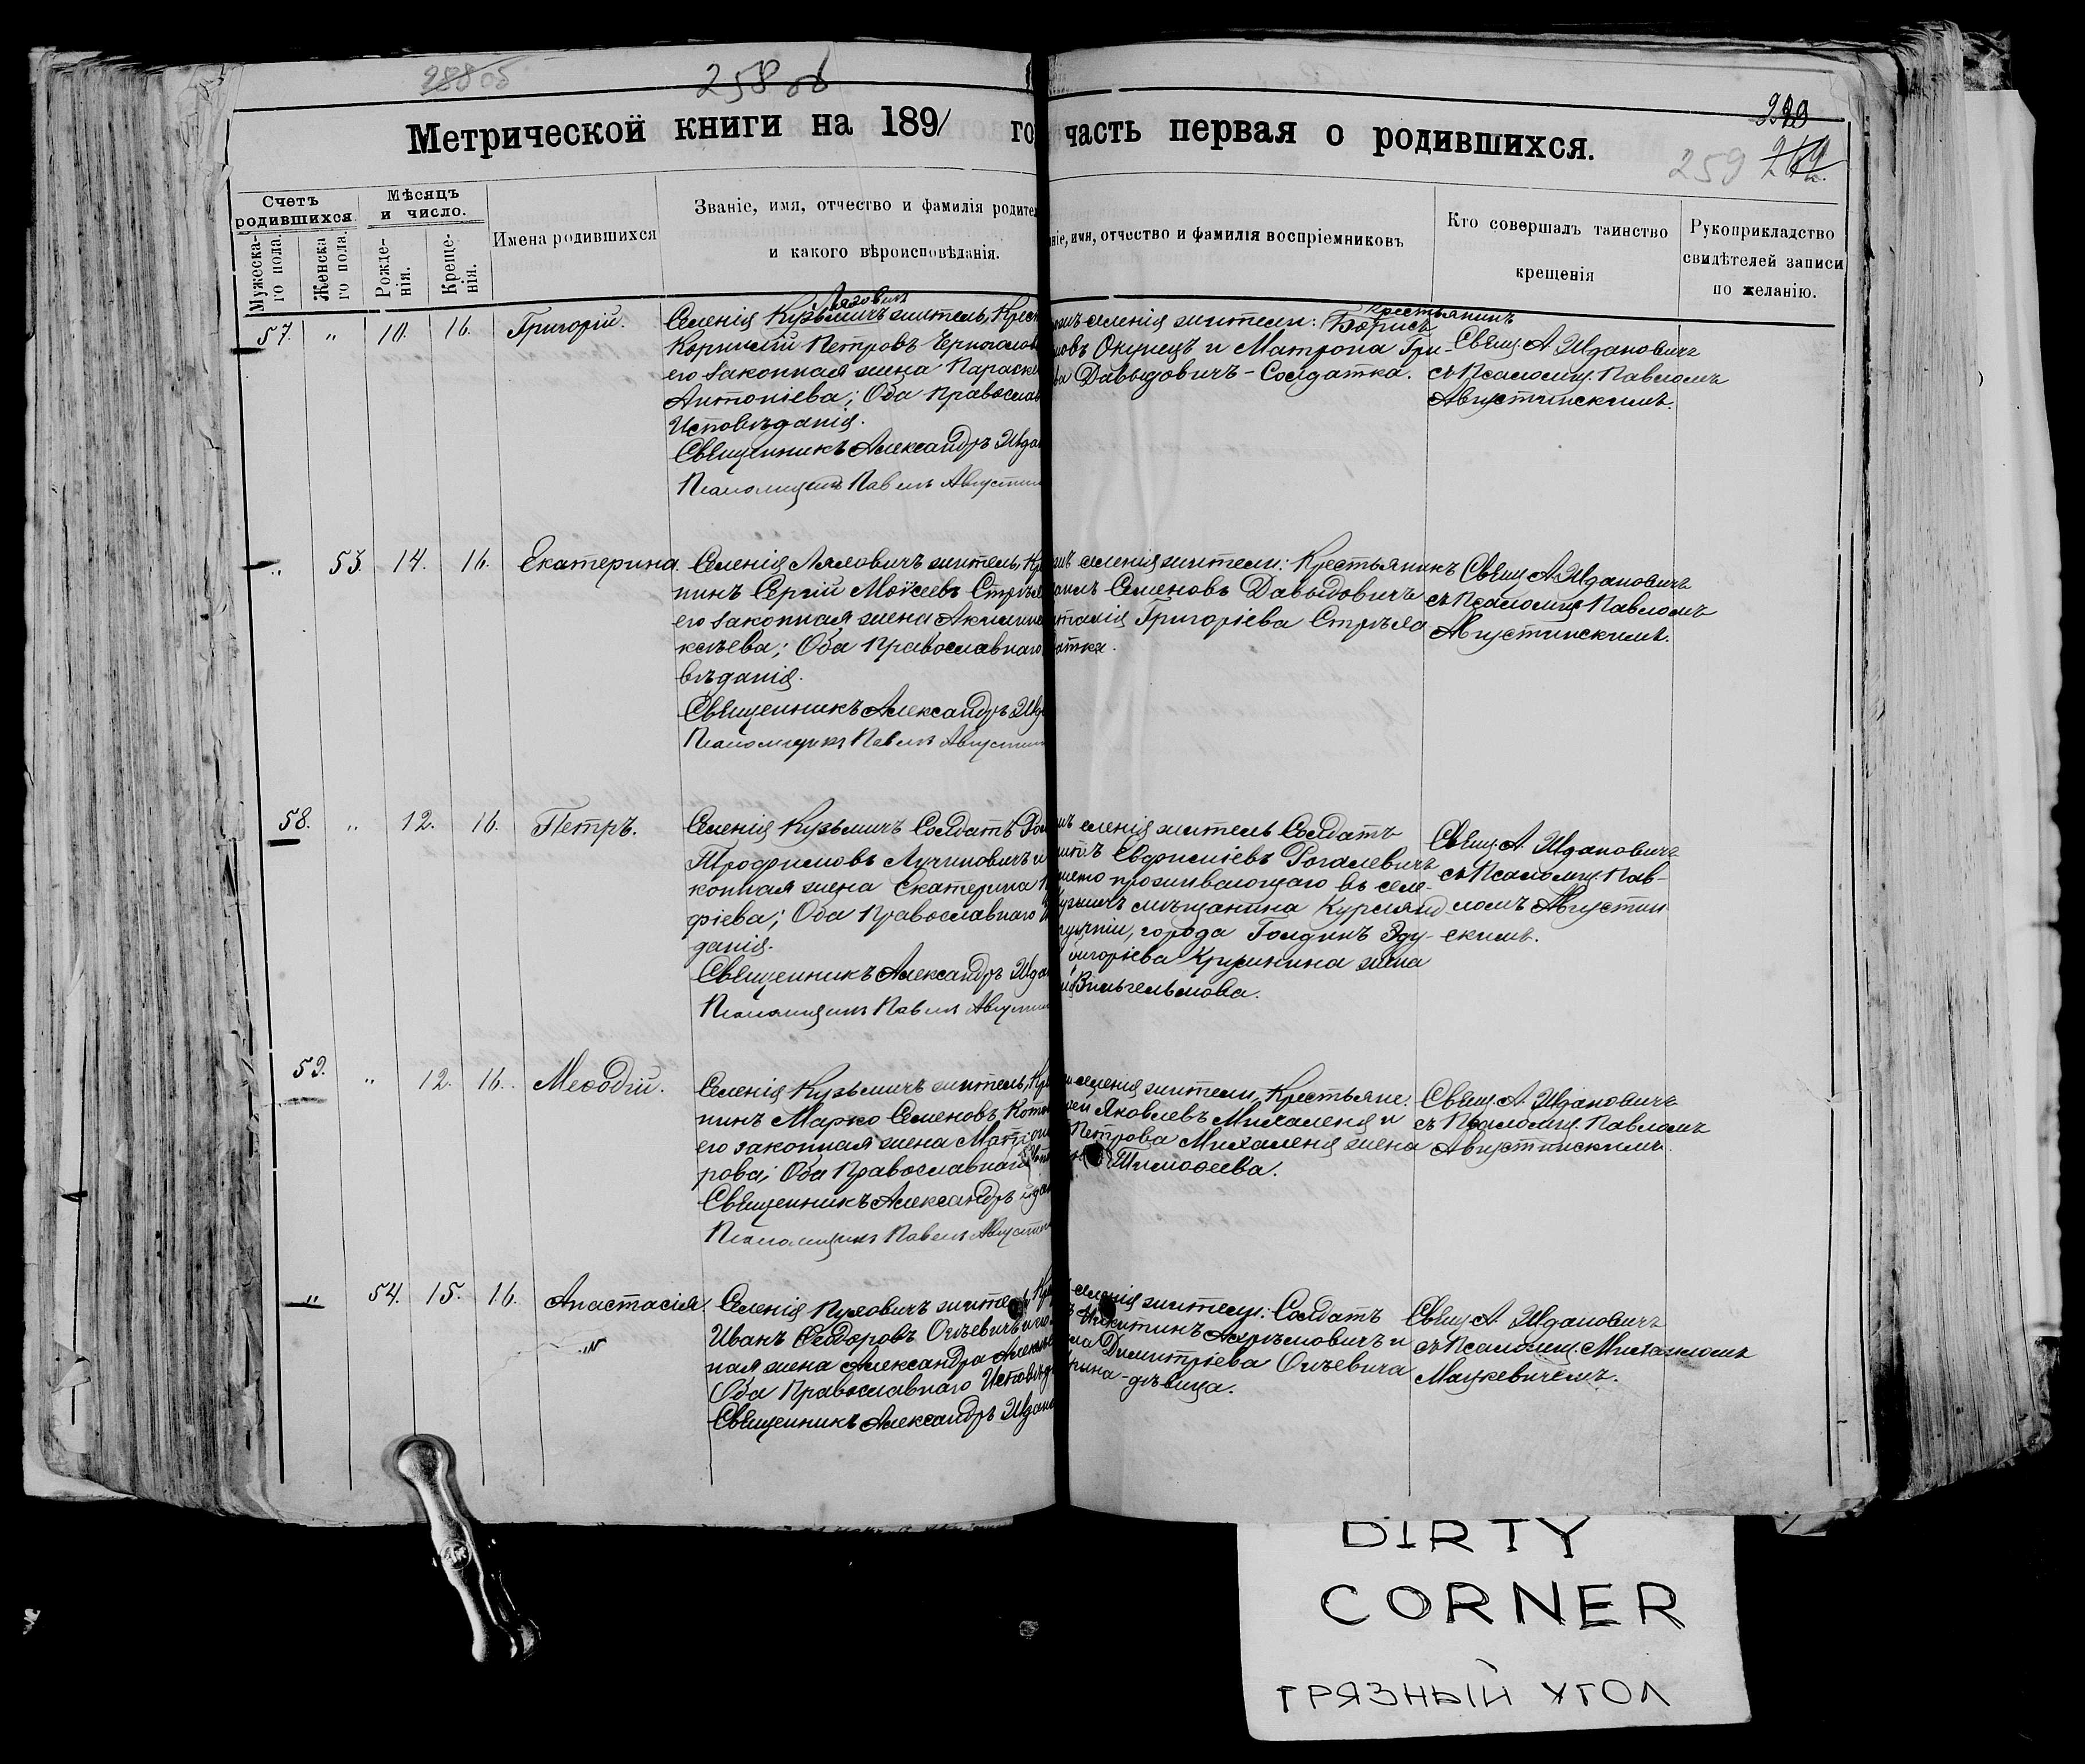 258 об
Метрической книги на 1891 го
часть первая о родившихся.
259
Счетъ родившихся.
Мѣсяцъ и число.
Мужеска-го пола.
Женска го пола.
Рожде-нія.
Креще-нія.
Имена родившихся
Званіе, имя, отчество и фамилія родите
и какого вѣроисповѣданія.
ніе, имя, отчество и фамилія воспріемниковъ
Кто совершалъ таинство
крещенія
Рукоприкладство
свидѣтелей записи
по желанію.
57. " 10. 16. Григорій.
Селенія Кузьмичъ житель, Крест
Корнилій Петровъ
его законная жена Параске
Антоніева; Оба Православ
Исповѣданія.
Священникъ Александръ Ждан
Псаломщикъ Павелъ Августин
селенія жители: Крестьянинъ Борисъ
Окунецъ и Матрона Гри-
Давыдовичъ - Солдатка.
Свящ. А. Ждановичъ
съ Псаломщ. Павломъ
Августинскимъ.
" 53. 14. 16. Екатерина.
Селенія Ляховичъ житель, Кр
нинъ Сергій Моисеевъ Стрѣл
его законная жена Акилин
ксѣева; Оба Православнаго
вѣданія.
Священникъ Александръ Жд
Псаломщикъ Павелъ Августин
селенія жители: Крестьянинъ
Семеновъ Давыдовичъ
Григоріева Стрѣла
атка.
Свящ. А. Ждановичъ
съ Псаломщ. Павломъ
Августинскимъ.
58. " 12. 16. Петръ.
Селенія Кузьмичъ Солдатъ
Трофимовъ Лучиновичъ и
конная жена Екатерина
фіева; Оба Православнаго И
данія.
Священникъ Александръ Ждан
Псаломщикъ Павелъ Августин
селенія житель Солдатъ
Евфиміевъ Рогалевичъ
проживающаго въ селе-
Кузьмичъ мѣщанина Курлянд
губерніи, города Голдинъ Эду-
григоріева Кружинина жена
Вильгельмова.
Свящ. А. Ждановичъ
съ Псаломщ. Пав-
ломъ Августин
скимъ.
59. " 12. 16. Меѳодій.
Селенія Кузьмичъ житель, Кр
нинъ Марко Семеновъ
его законная жена Матрон
рова; Оба Православнаго Исп
Священникъ Александръ Ждан
Псаломщикъ Павелъ Августин
селенія жители, Крестьяне:
Яковлевъ Михаленя и
Петрова Михаленя жена
Тимоѳеева.
Свящ. А. Ждановичъ
съ Псаломщ. Павломъ
Августинскимъ.
" 54. 15. 16. Анастасія.
Селенія житель, Кр
Иванъ Ѳедоровъ
ная жена Александра Алекс
Оба Православнаго Исповѣд
Священникъ Александръ Ждан
селенія жители: Солдатъ
Никитинъ и
Димитріева
- дѣвица.
Свящ. А. Ждановичъ
съ Псаломщ. Михаиломъ
Мацкевичемъ.
DIRTY
CORNER
ГРЯЗНЫЙ УГОЛ